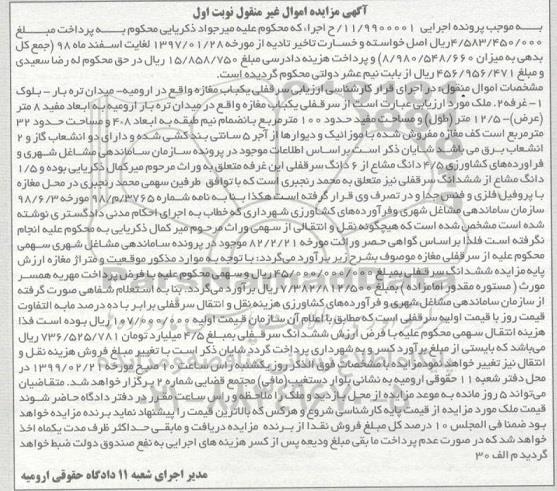 آگهی مزایده اموال غیر منقول نوبت اول
به موجب پرونده اجرایی ۱۱/۹۹۰۰۰۰۱/ح اجراء که محکوم علیه میرجواد ذکریایی محکوم به پرداخت مبلغ
۴/۵۸۳/۴۵۰/۰۰۰ریال اصل خواسته و خسارت تاخیر تادیه از مورخه ۱۳۹۷/۰۱/۲۸ لغایت اسفند ماه ۹۸ (جمع کل
بدهی به میزان ۸/۹۸۰/۵۴۸/۶۶۰) و پرداخت هزینه دادرسی مبلغ ۱۵/۸۵۸/۷۵۰ ریال در حق محکوم له رضا سعیدی
و مبلغ ۴۵۶/۹۵۶/۴۷۱ ریال از بابت نیم عشر دولتی محکوم گردیده است.
مشخصات اموال منقول: در اجرای قرار کارشناسی ارزیابی سرقفلی یکباب مغازه واقع در ارومیه- میدان تره بار - بلوک
۱- غرفه۲. ملک مورد ارزیابی عبارت است از سرقفلی یکباب مغازه واقع در میدان تره بار ارومیه به ابعاد مفید ۸ متر
(عرض)- ۱۲/۵ متر (طول) و مساحت مفید حدود ۱۰۰ مترمربع بانضمام نیم طبقه به ابعاد ۸*۴ و مساحت حدود ۳۲
مترمربع است کف مغازه مفروش شده با موزائیک و دیوارها از آجر ۵ سانتی بند کشی شده و دارای دو انشعاب گاز و ۲
انشعاب برق می باشد. شایان ذکر است بر اساس اطلاعات موجود در پرونده سازمان ساماندهی مشاغل شهری و
فراورده‌های کشاورزی ۴/۵ دانگ مشاع از ۶ دانگ سرقفلی این غرفه متعلق به وراث مرحوم میرکمال ذکریایی بوده و ۱/۵
دانگ مشاع از ششدانگ سرقفلی نیز متعلق به محمد رنجبری است که با توافق طرفین سهمی محمد رنجبری در محل مغازه
با پروفیل فلزی و فنس جدا و در تصرف وی قرار گرفته است هکذا بنا به نامه شماره ۳۷۶۵/م/۹۸ مورخه ۹۸/۶/۳
سازمان ساماندهی مشاغل شهری وفرآورده‌های کشاورزی شهرداری که خطاب به اجرای احکام مدنی دادگستری نوشته
شده است مشخص شده است که هیچگونه نقل و انتقالی از سهمی وراث مرحوم میر کمال ذکریایی به محکوم علیه انجام
نگرفته است فلذا بر اساس گواهی حصر وراثت مورخه ۸۲/۲/۲۱ موجود در پرونده ساماندهی مشاغل شهری سهمی
محکوم علیه از سرقفلی مغازه موصوف بشرح زیر برآورد می‌گردد: با توجه به موارد مذکور موقعیت و متراژ مغازه ارزش
پایه مزایده ششدانگ سرقفلی بمبلغ ۴۵/۰۰۰/۰۰۰/۰۰۰ ریال و سهمی محکوم علیه با فرض پرداخت مهریه همسر
مورث (مستوره مقدور امامزاده) بمبلغ ۷/۳۸۲/۸۱۲/۵۰۰ ریال برآورد می‌گردد. بنا به استعلام شفاهی صورت گرفته
از سازمان ساماندهی مشاغل شهری و فرآورده‌های کشاورزی هزینه نقل و انتقال سرقفلی برابر با ده درصد مابه التفاوت
قیمت روز با قیمت اولیه سرقفلی است که مطابق با اعلام آن سازمان قیمت اولیه ۱۰۷/۶۰۰/۰۰۰ ریال بوده است فذا
هزینه انتقال سهمی محکوم علیه با فرض ارزش ششدانگ سرقفلی بمبلغ ۴/۵ میلیارد تومان ۷۳۶/۵۲۵/۷۸۱ ریال
می‌باشد که بایستی از مبلغ برآورد کسر و به شهرداری پرداخت گردد شایان ذکر است با تغییر مبلغ فروش هزینه نقل و
انتقال نیز تغییر خواهد نمود مزایده با مشخصات فوق الذکر روز یکشنبه از ساعت ۹ الی ۱۰ صبح مورخه ۱۳۹۹/۰۲/۲۱ در
محل دفتر شعبه ۱۱ حقوقی ارومیه به نشانی بلوار دستغیب (مافی) مجتمع قضایی شماره ۲ برگزار خواهد شد. متقاضیان
می‌تواند ۵ روز مانده به موعد مزایده از محل بازدید و نظر را ملاحظه و راس ساعت مقرر در دفتر دادگاه حاضر شوند
قیمت ملک مورد مزایده از قیمت پایه کارشناسی شروع و هر کس که بالاترین قیمت را پیشنهاد نماید برنده مزایده خواهد
بود ضمنا فی المجلس ۱۰ درصد کل مبلغ فروش نقدا از برنده مزایده دریافت و مابقی حداکثر ظرف مدت یکماه اخذ
خواهد شد که در صورت عدم پرداخت ما بقی مبلغ ودیعه پس از کسر هزینه های اجرایی به نفع صندوق دولت ضبط خواهد
گردید م الف ۳۰
مدیر اجرای شعبه ۱۱ دادگاه حقوقی ارومیه